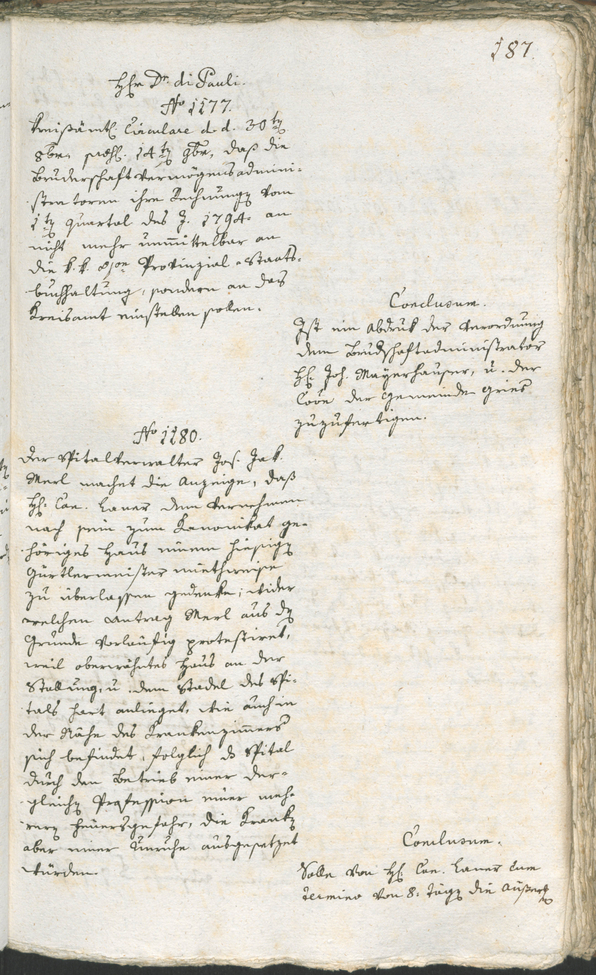 187.
Hr. Dr. di Pauli.
No 1177.
Kreißämtl. Circulare d. d. 30ten
8ber, prés. 14ten 9ber, daß die
Bruderschaft Vermögensadmini-
stratoren ihre Rechnungen vom
1ten Quartal des J. 1794. an
nicht mehr unmittelbar an
die k. k. Provinzial-Staats-
buchhaltung, sondern an das
Kreisamt einstellen sollen.
Conclusum.
Ist ein Abdruk der Verordnung
dem Brudschaftadministrator
H. Joh. Mayerhauser, u. der
der Gemeinde Gries
zuzufertigen.
No 1180.
Der Spitalverwalter Jos. Jak.
Merl machet die Anzeige, daß
H. Can. Laner dem Vernehmen
nach sein zum Kanonikat ge-
höriges Haus einem hiesigen
Gürtlermeister miethweise
zu überlassen gedenke; wider
welchen Antrag Merl aus dem
Grunde vorläufig protestiret,
weil oberwähntes Haus an der
Stallung, u. dem Stadel des Spi-
tals hart anlieget, wie auch in
der Nähe des Krankenzimmers
sich befindet, folglich das Spital
durch den Betrieb einer der-
gleichen Profession einer meh-
rern Feuersgefahr, die Kranken
aber einer Unruhe ausgesetzet
würden.
Conclusum.
Solle von H. Can. Laner cum
termino von 8. Tägen die Äußerung